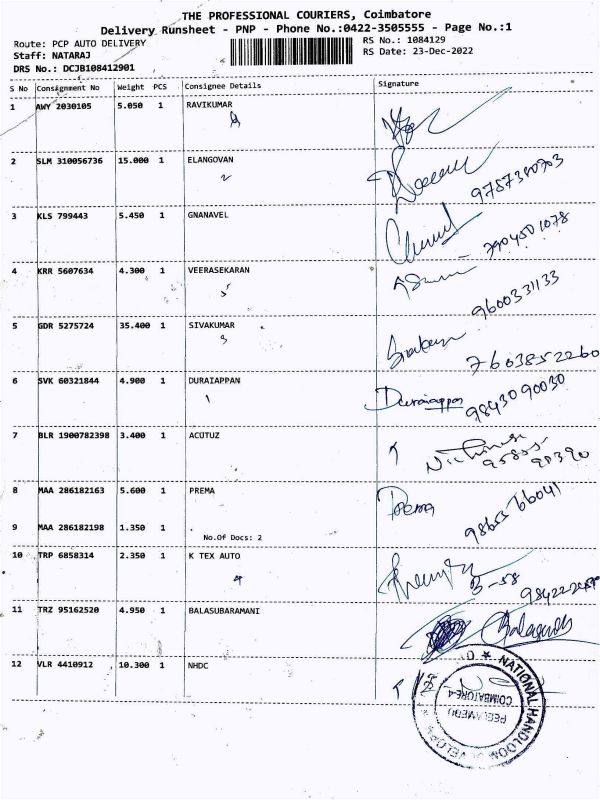 THE PROFESSIONAL COURIERS, Coimbatore
Delivery Runsheet - PNP - Phone No.:0422-3505555 - Page No.:1
Route: PCP AUTO DELIVERY
RS No.: 1084129
Staff: NATARAJ
RS Date: 23-Dec-2022
DRS No.: DCJB108412901
S No Consignment No Weight PCS Consignee Details Signature
1 AWY 2030105 5.050 1 RAVIKUMAR
2 SLM 310056736 15.000 1 ELANGOVAN
2
3 KLS 799443 5.450 1 GNANAVEL
7904501078
4 KRR 5607634 4.300 1 VEERASEKARAN
5
9600331133
5 GDR 5275724 35.400 1 SIVAKUMAR
7603852260
6 SVK 60321844 4.900 1 DURAIAPPAN
1
Duraiappan
9843090030
7 BLR 1900782398 3.400 1 ACUTUZ
8 MAA 286182163 5.600 1 PREMA
Prema
9865566041
9 MAA 286182198 1.350 1
No.Of Docs: 2
10 TRP 6858314 2.350 1 K TEX AUTO
11 TRZ 95162520 4.950 1 BALASUBARAMANI
12 VLR 4410912 10.300 1 NHDC
NATIONAL HANDLOOM
PEELAMEDU
COIMBATORE-4